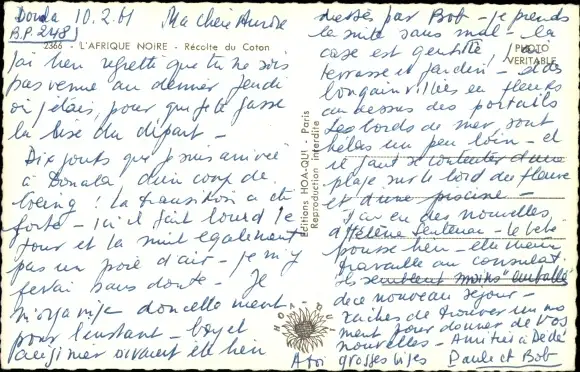 Douala 10.2.61 Ma chère Aurore
B.P. 2481
2366 - L'AFRIQUE NOIRE - Récolte du Coton
J'ai bien regretté que tu ne sois
pas venue au dernier jeudi
où j'étais, pour que je te fasse
la bise du départ -
Dix jours que je suis arrivée
à Douala d'un coup de
Boeing! La transition a été
forte - Ici il fait lourd le
jour et la nuit également
pas un poil d'air - je m'y
ferai sans doute - Je
m'organise doucettement
pour l'instant -
avaient été bien
Editions HOA-QUI - Paris
Reproduction interdite
HOA-QUI
PHOTO
VERITABLE
dressés par Bob - je prends
la suite sans mal - la
case est gentille,
terrasse et jardin - et des
bougainvillées en fleurs
au dessus des portails
Les bords de mer sont
hélas un peu loin - et
il faut se contenter d'une
plage sur le bord du fleuve
et d'une piscine -
J'ai eu des nouvelles
d'Hélène - le bébé
pousse bien - elle vient
travailler au consulat
ils semblent moins emballés
de ce nouveau séjour -
Tâches de trouver un mo
ment pour donner de vos
nouvelles - Amitiés à Dédé
A toi grosses bises Paule et Bob